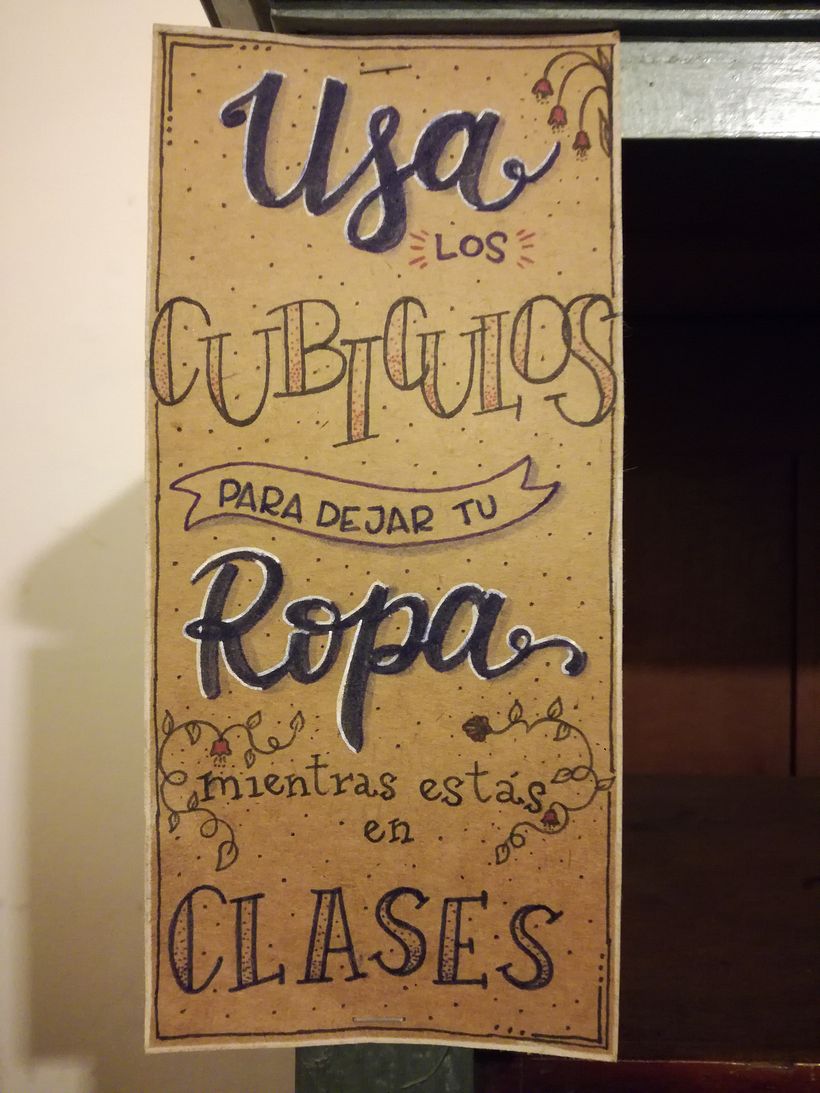 Usa
LOS
CUBICULOS
PARA DEJAR TU
Ropa
mientras estás
en
CLASES